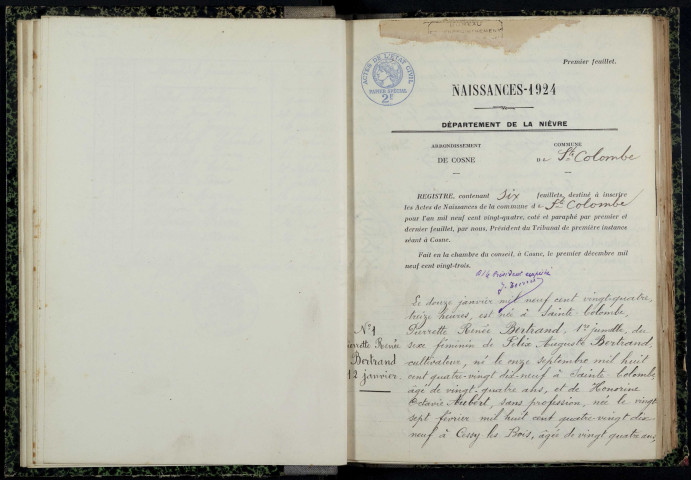 BUREAU
Premier feuillet.
ACTES DE L'ÉTAT CIVIL
PAPIER SPÉCIAL
2F
NAISSANCES-1924
DÉPARTEMENT DE LA NIÈVRE
ARRONDISSEMENT
DE COSNE
COMMUNE
De Ste Colombe
REGISTRE, contenant Six feuillets, destiné à inscrire
les Actes de Naissances de la commune de Ste Colombe
pour l'an mil neuf cent vingt-quatre, coté et paraphé par premier et
dernier feuillet, par nous, Président du Tribunal de première instance
séant à Cosne.
Fait en la chambre du conseil, à Cosne, le premier décembre mil
neuf cent vingt-trois.
Président
Le douze janvier mil neuf cent vingt-quatre,
treize heures, est née à Sainte Colombe,
Pierrette Renée Bertrand, 1re jumelle, du
sexe féminin de Félix Auguste Bertrand,
cultivateur, né le onze septembre mil huit
cent quatre-vingt dix-neuf à Sainte Colombe,
âgé de vingt-quatre ans, et de Honorine
Octavie Aubert, sans profession, née le vingt
sept février mil huit cent quatre-vingt dix-
neuf à Cessy les Bois, âgée de vingt quatre ans,
No 1
Pierrette Renée
Bertrand
12 janvier